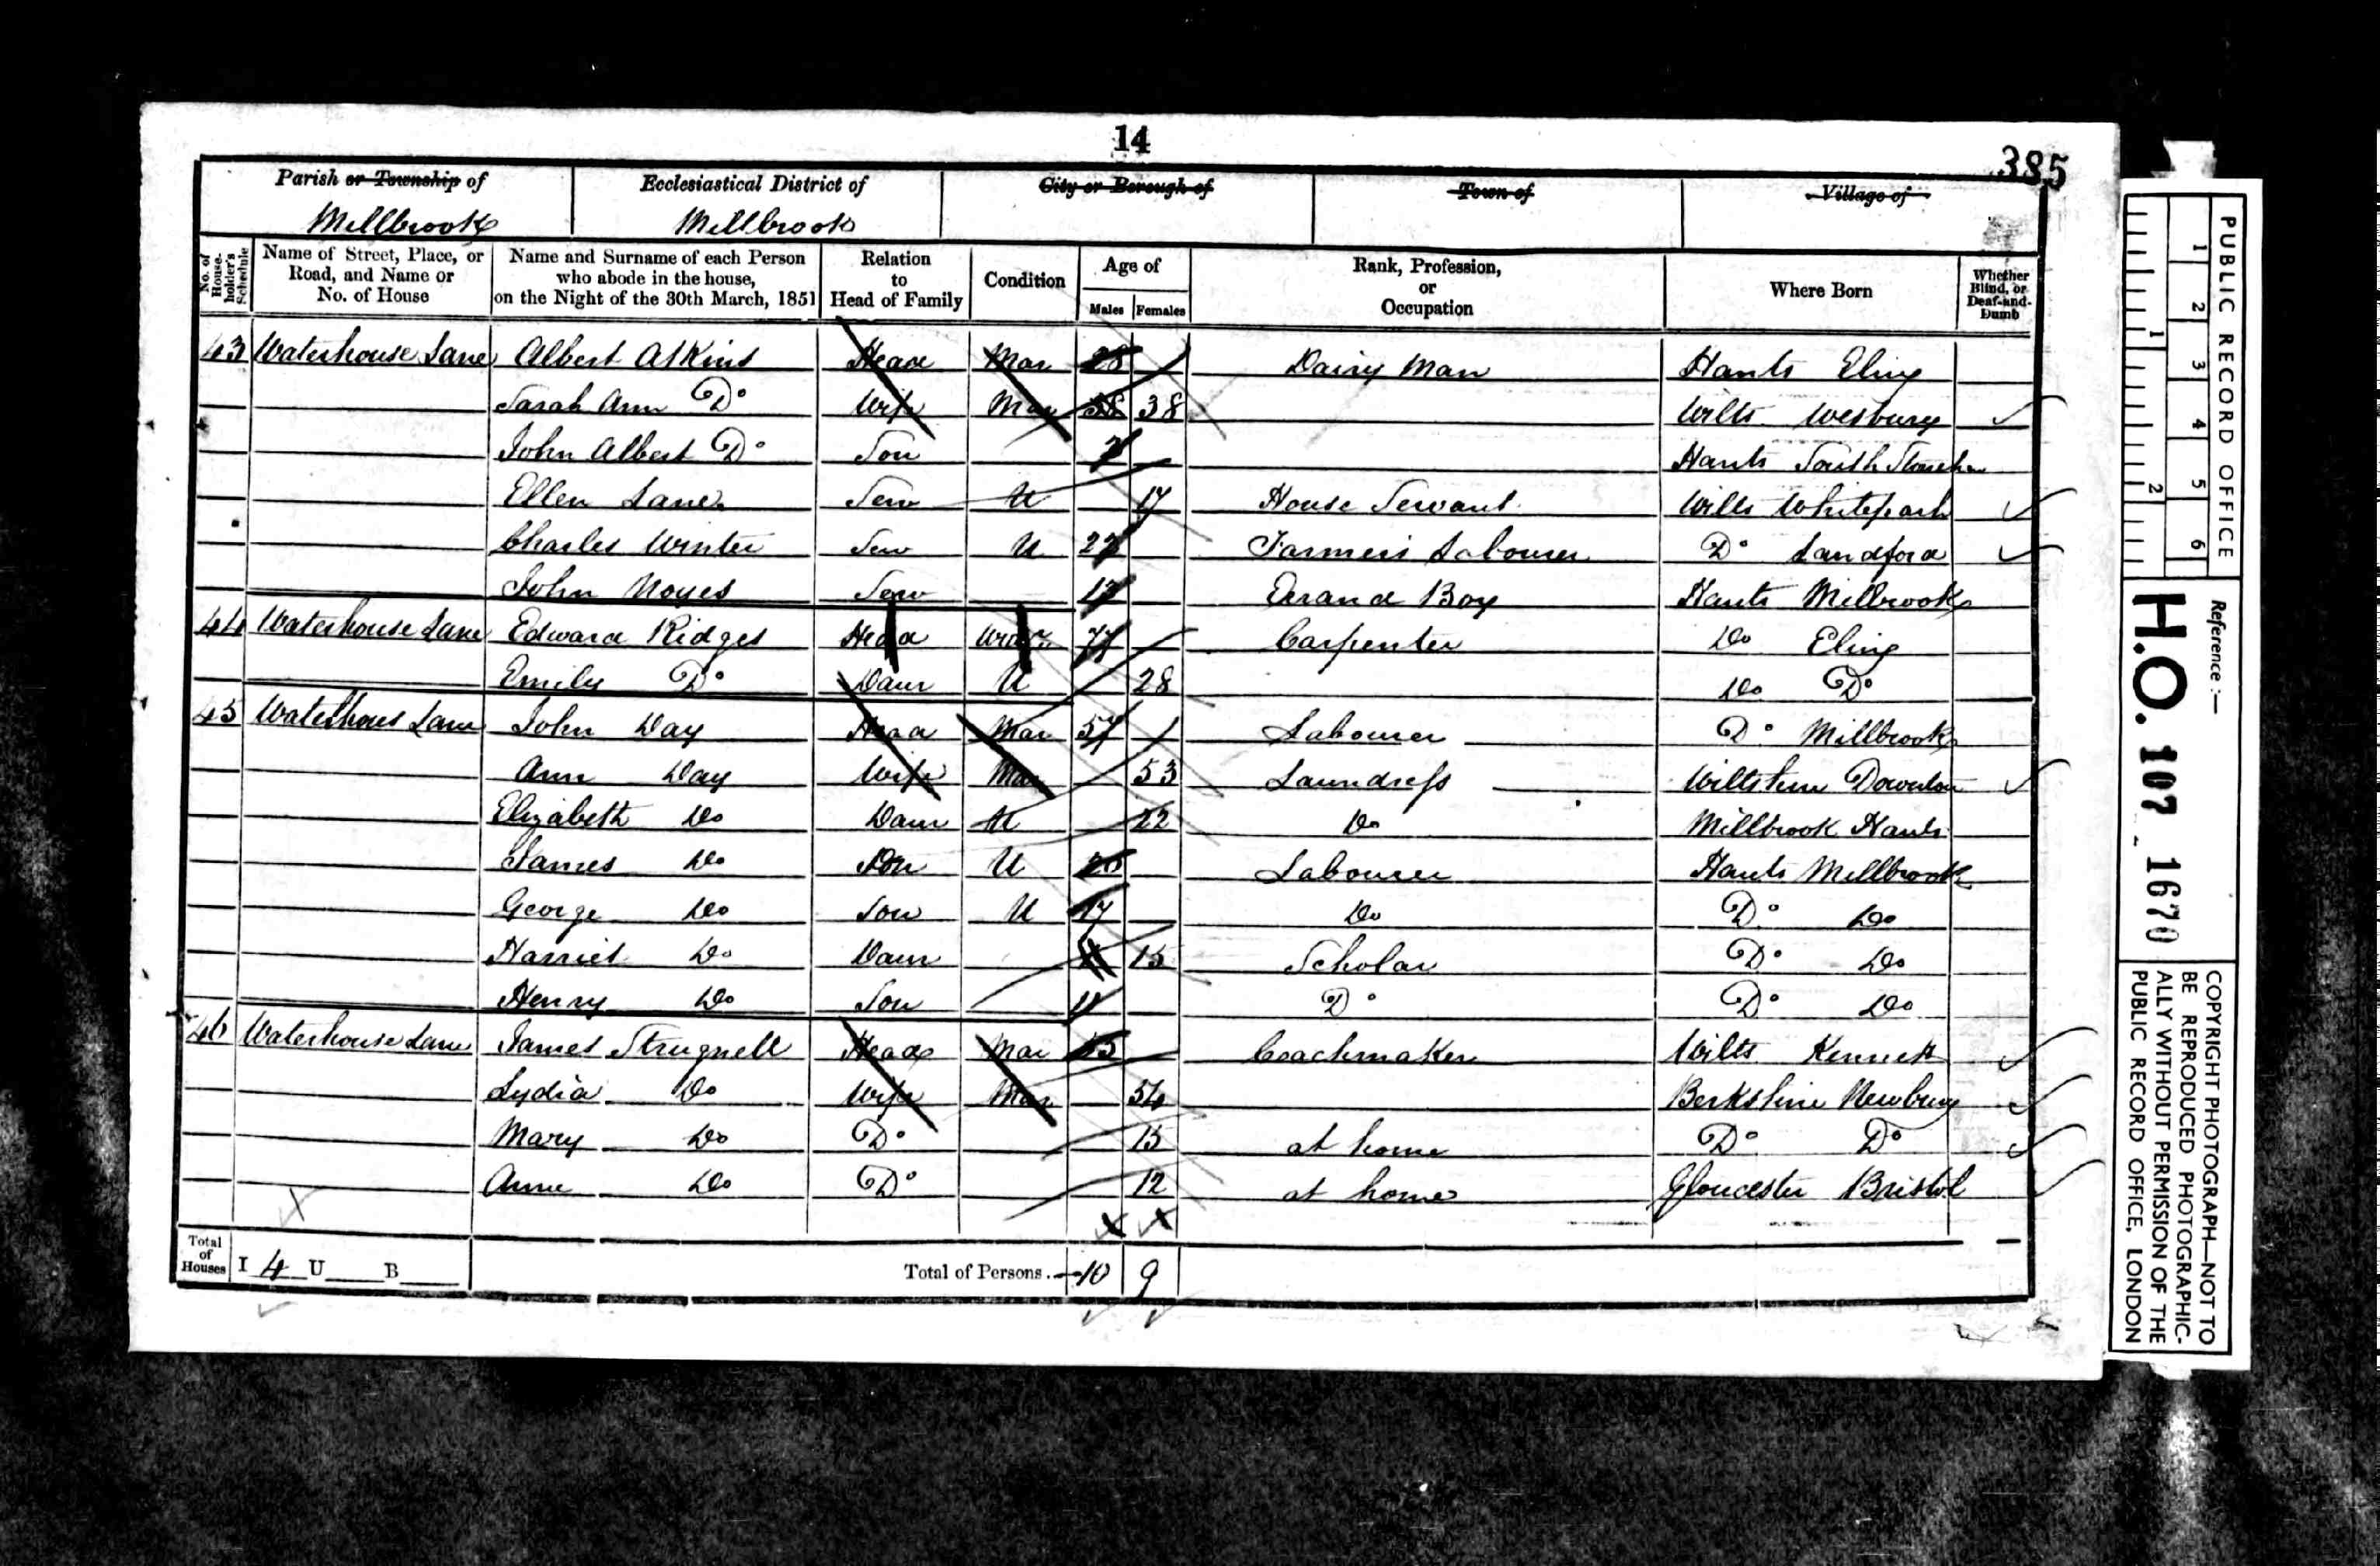 14
385
Parish or Township of
Millbrook
Ecclesiastical District of
Millbrook
City or Borough of
Town of
Village of
No. of House-holder's Schedule
Name of Street, Place, or Road, and Name or No. of House
Name and Surname of each Person who abode in the house, on the Night of the 30th March, 1851
Relation to Head of Family
Condition
Age of
Males Females
Rank, Profession, or Occupation
Where Born
Whether Blind, or Deaf-and-Dumb
43 Waterhouse Lane Albert Atkins Head Mar 28 Dairy Man Hants Eling
Sarah Ann Do Wife Mar 38 38 Wilts Wesbury
John Albert Do Son Hants South
Ellen Lane Serv U 17 House Servant Wilts
Charles Winter Serv U Farmers Labourer Do Landford
John Noyes Serv 13 Errand Boy Hants Millbrook
44 Waterhouse Lane Edward Ridges Head 77 Carpenter Do Eling
Emily Do Daur U 28 Do Do
45 Waterhous Lane John Day Head Mar 57 Labourer Do Millbrook
Ann Day Wife Mar 53 Laundress Wiltshire Downton
Elizabeth Do Daur U 22 Do Millbrook Hants
James Do Son U 20 Labourer Hants Millbrook
George Do Son U 17 Do Do Do
Harriet Do Daur 15 Scholar Do Do
Henry Do Son 11 Do Do Do
46 Waterhouse Lane James Strugnell Head Mar Coachmaker Wilts
Lydia Do Wife Mar 54 Berkshire Newbury
Mary Do Do 15 at home Do Do
Anne Do Do 12 at home Gloucester Bristol
Total of Houses I 4 U B Total of Persons 10 9
PUBLIC RECORD OFFICE
1 2 3 4 5 6
1 2
Reference :—
H.O. 107 - 1670
COPYRIGHT PHOTOGRAPH—NOT TO
BE REPRODUCED PHOTOGRAPHIC-
ALLY WITHOUT PERMISSION OF THE
PUBLIC RECORD OFFICE, LONDON